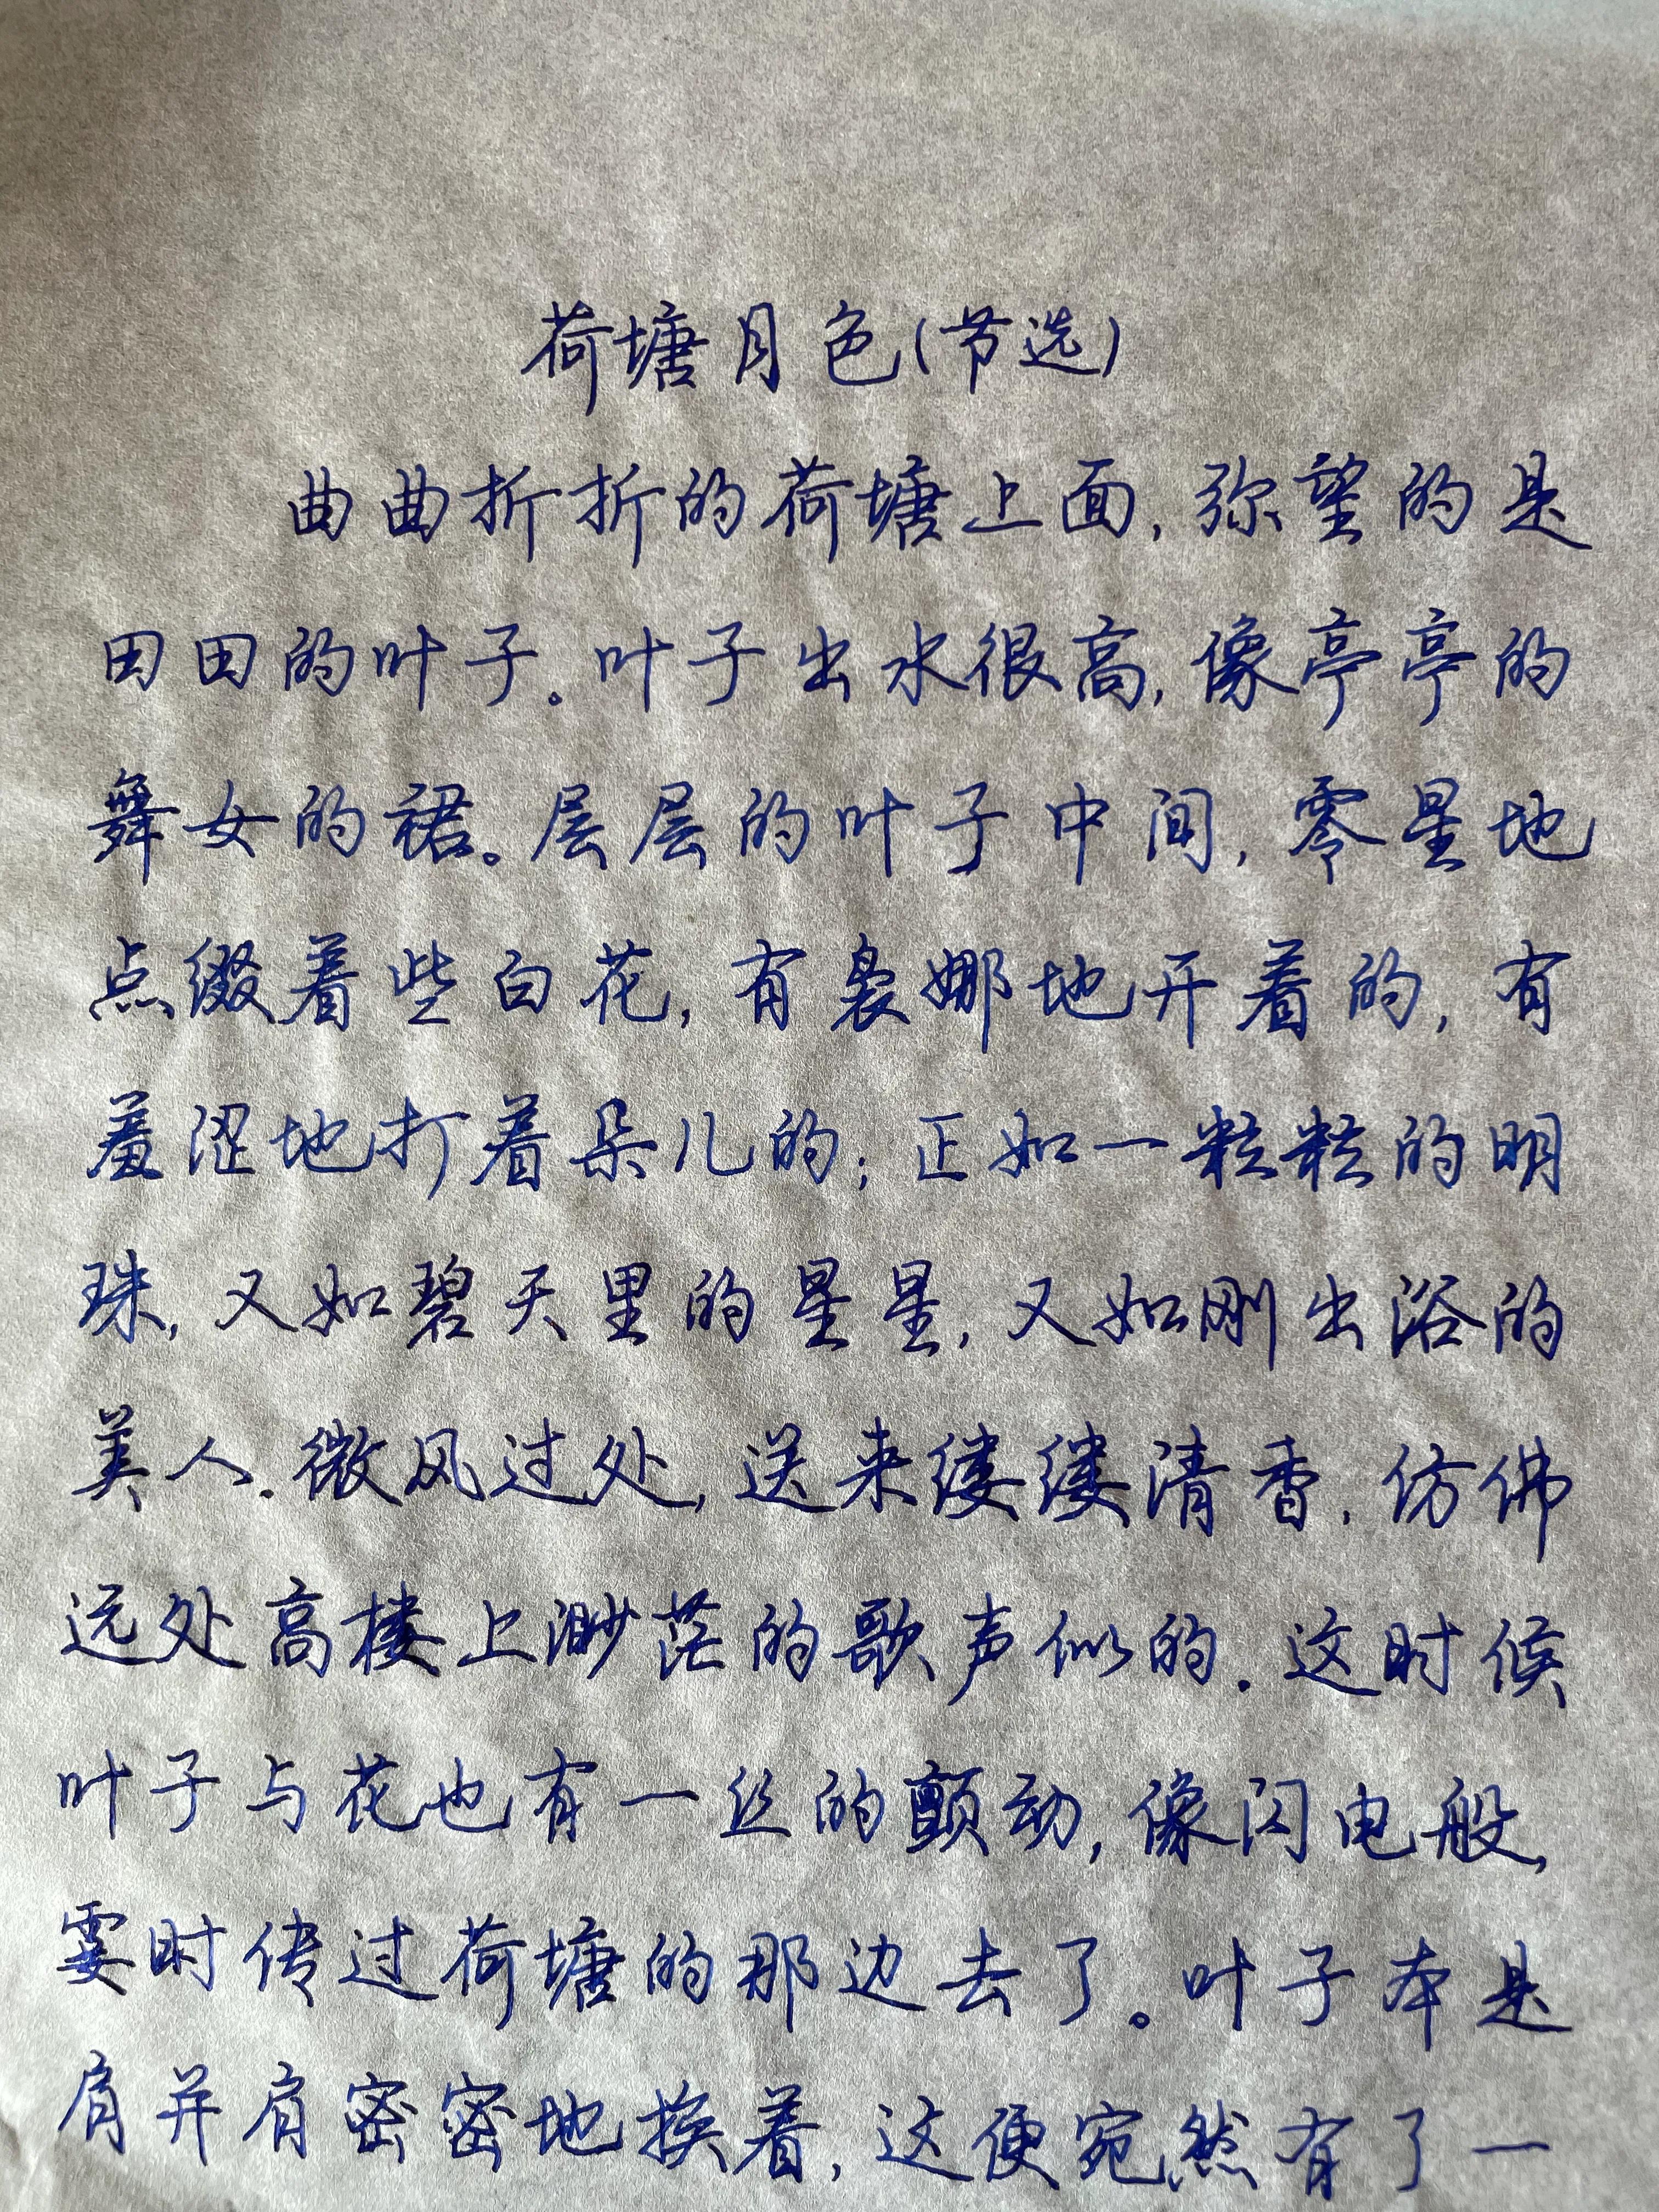 荷塘月色(节选)
曲曲折折的荷塘上面,弥望的是
田田的叶子。叶子出水很高,像亭亭的
舞女的裙。层层的叶子中间,零星地
点缀着些白花,有袅娜地开着的,有
羞涩地打着朵儿的;正如一粒粒的明
珠,又如碧天里的星星,又如刚出浴的
美人.微风过处,送来缕缕清香,仿佛
远处高楼上渺茫的歌声似的.这时候
叶子与花也有一丝的颤动,像闪电般,
霎时传过荷塘的那边去了。叶子本是
肩并肩密密地挨着,这便宛然有了一